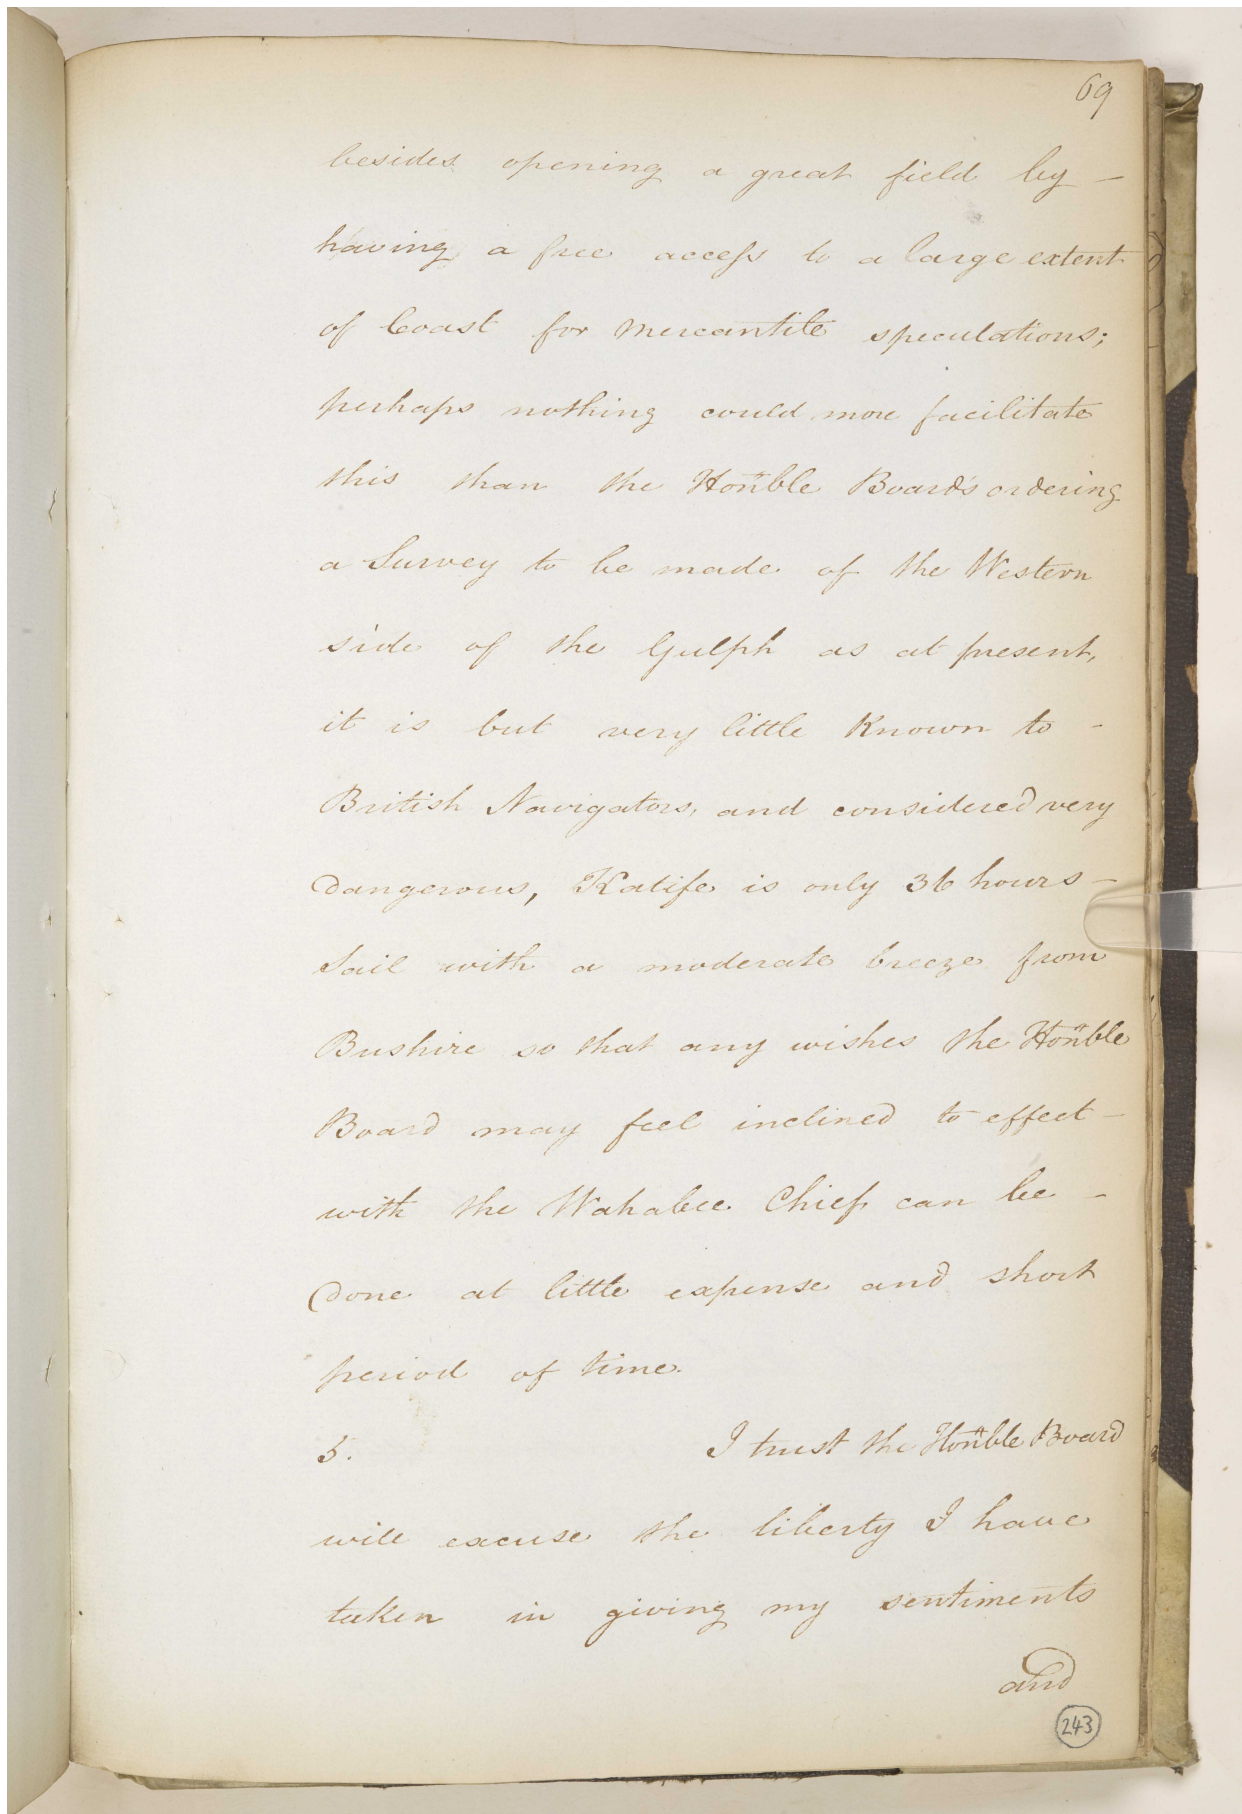 69
besides opening a great field by -
having a free access to a large extent
of Coast for mercantile speculations;
perhaps nothing could more facilitate
this than the Honble Board's ordering
a Survey to be made of the Western
side of the Gulph as at present,
it is but very little Known to -
British Navigators, and considered very
dangerous, Katife is only 36 hours -
Sail with a moderate breeze from
Bushire so that any wishes the Honble
Board may feel inclined to effect -
with the Wahabee Chief can be -
done at little expense and short
period of time.
5. I trust the Honble Board
will excuse the liberty I have
taken in giving my sentiments
and
243